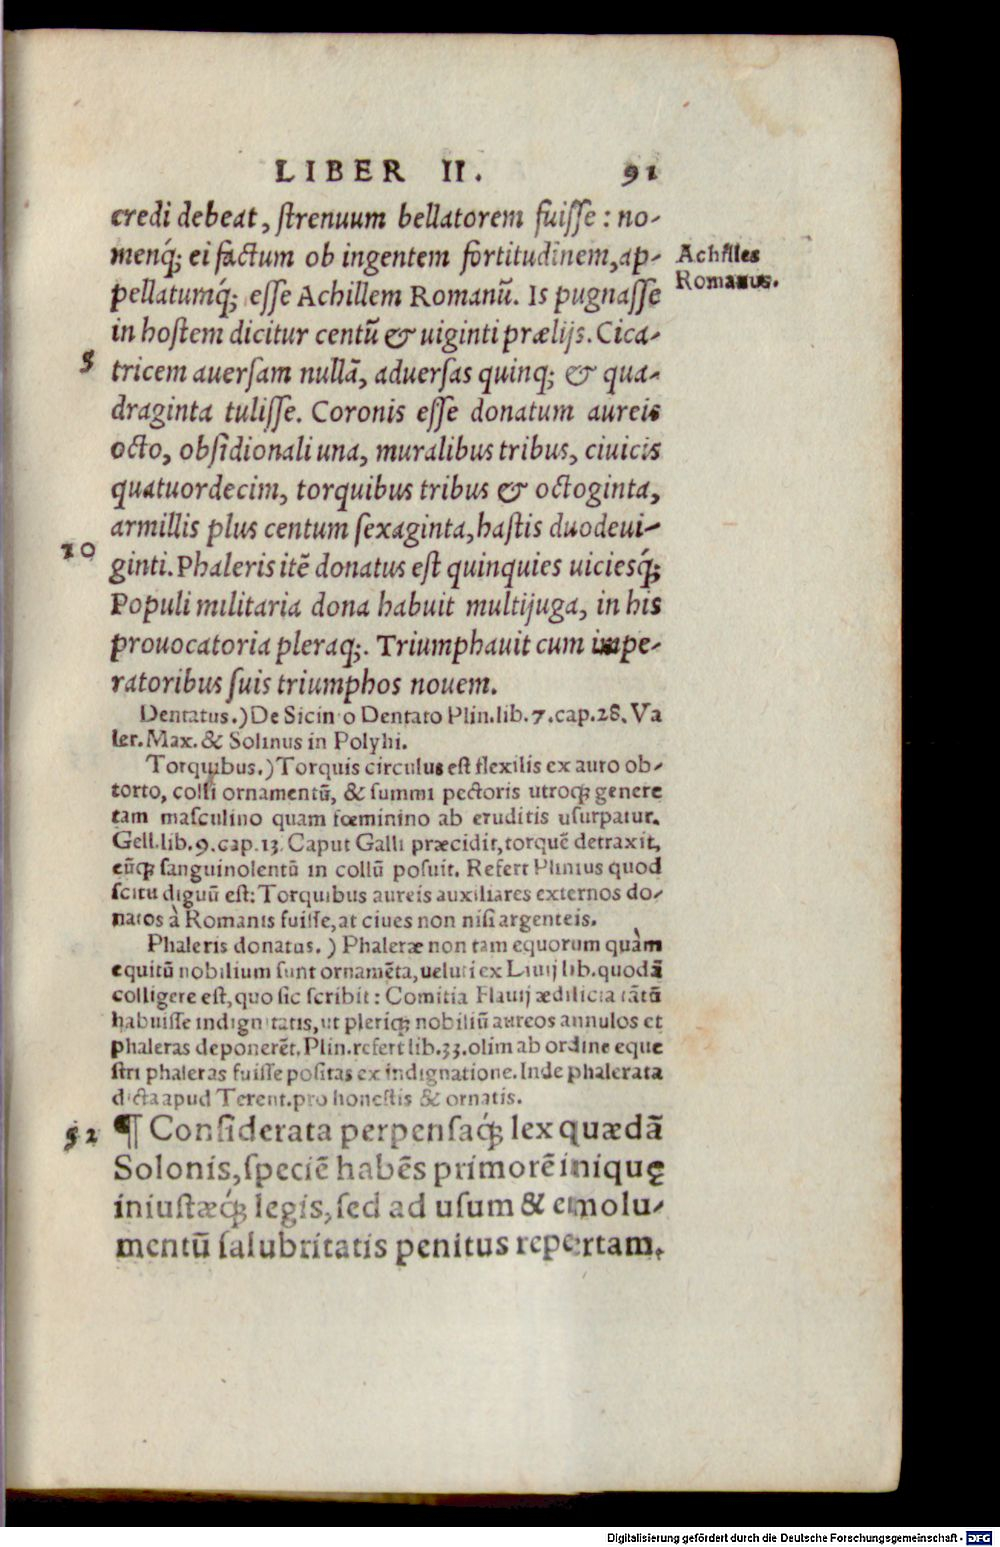 LIBER II. 91
credi debeat, ſtrenuum bellatorem fuiſſe : no-
menq́; ei factum ob ingentem fortitudinem, ap-
Achilles
Romanus.
pellatumq́; eſſe Achillem Romanū. Is pugnaſſe
in hoſtem dicitur centū & uiginti prælijs. Cica-
5
tricem auerſam nullā, aduerſas quinq; & qua-
draginta tuliſſe. Coronis eſſe donatum aureis
octo, obſidionali una, muralibus tribus, ciuicis
quatuordecim, torquibus tribus & octoginta,
armillis plus centum ſexaginta, haſtis duodeui-
10
ginti. Phaleris itē donatus eſt quinquies uicieſq́;
Populi militaria dona habuit multijuga, in his
prouocatoria pleraq;. Triumphauit cum impe-
ratoribus ſuis triumphos nouem.
Dentatus.) De Sicin o Dentato Plin.lib.7.cap.28. Va
ler. Max. & Solinus in Polyhi.
Torquibus.) Torquis circulus eſt flexilis ex auro ob-
torto, colli ornamentū, & ſummi pectoris utroq; genere
tam maſculino quam fœminino ab eruditis uſurpatur.
Gell.lib.9.cap.13. Caput Galli præcidit, torquē detraxit,
eūq; ſanguinolentū in collū poſuit. Refert Plinius quod
ſcitu diguū eſt: Torquibus aureis auxiliares externos do-
natos à Romanis fuiſſe, at ciues non niſi argenteis.
Phaleris donatus. ) Phaleræ non tam equorum quàm
equitū nobilium ſunt ornamēta, ueluti ex Liuij lib. quodā
colligere eſt, quo ſic ſcribit : Comitia Flauij ædilicia tātū
habuiſſe indignitatis, ut pleriq; nobiliū aureos annulos et
phaleras deponerēt. Plin. refert lib.33. olim ab ordine eque
ſtri phaleras fuiſſe poſitas ex indignatione. Inde phalerata
dicta apud Terent. pro honeſtis & ornatis.
52 ¶ Conſiderata perpenſaq́; lex quædā
Solonis, ſpeciē habēs primorē iniquę
iniuſtæq́; legis, ſed ad uſum & emolu-
mentū ſalubritatis penitus repertam.
Digitalisierung gefördert durch die Deutsche Forschungsgemeinschaft - DFG